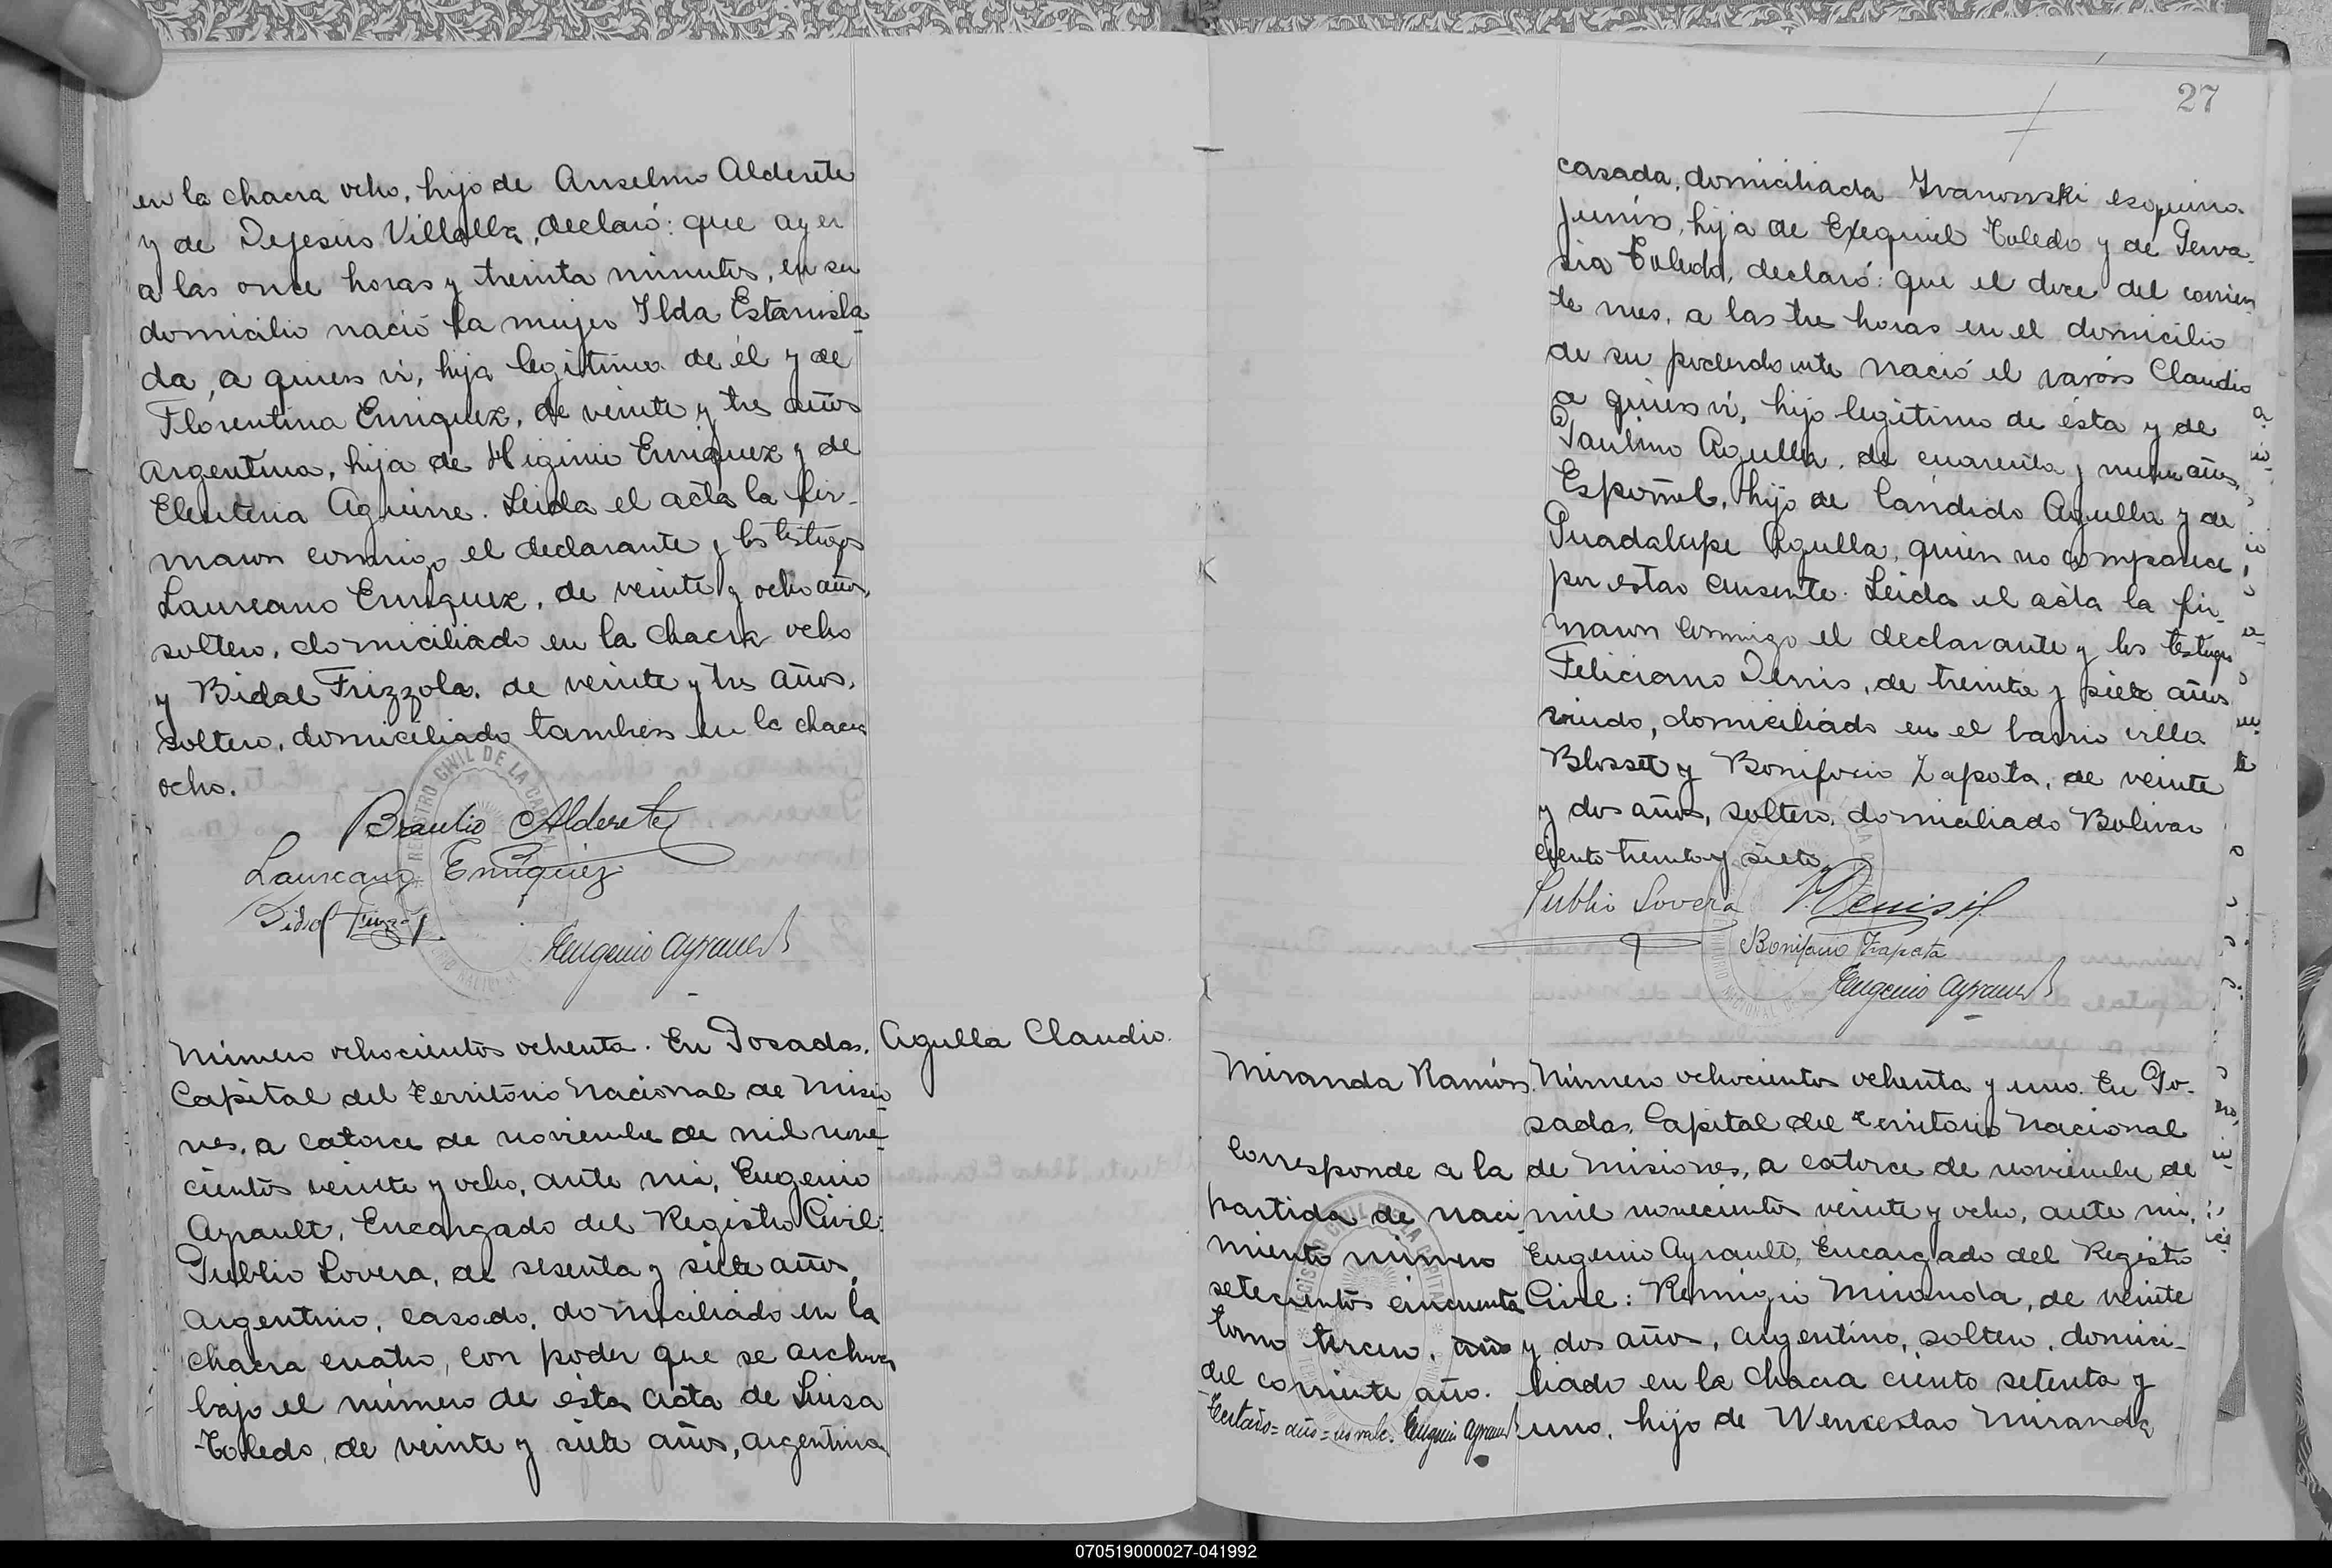 en la chacra ocho, hijo de Anselmo Alderete
y de Dejesús Villalba, declaró: que ayer
a las once horas y treinta minutos, en su
domicilio nació la mujer Ilda Estanisla-
da, a quien ví, hija legítima de él y de
Florentina Enriquez, de veinte y tres años
argentina, hija de Higinio Enriquez y de
Eleuteria Aguirre. Leida el acta la fir-
maron conmigo el declarante y los testigos
Laureano Enriquez, de veinte y ocho años,
soltero, domiciliado en la chacra ocho
y Bidal Frizzola, de veinte y tres años,
soltero, domiciliado tambien en la chacra
ocho.
REGISTRO CIVIL DE LA CAPITAL
Braulio Alderete
Laureano Enriquez
Eugenio Ayrault
Número ochocientos ochenta. En Posadas,
Capital del Territorio Nacional de Misio-
nes, a catorce de noviembre de mil nove-
cientos veinte y ocho, ante mi, Eugenio
Ayrault, Encargado del Registro Civil:
Publio Lovera, de sesenta y siete años,
argentino, casado, domiciliado en la
chacra cuatro, con poder que se archiva
bajo el número de ésta acta de Luisa
Toledo, de veinte y siete años, argentina
Agulla Claudio.
27
casada, domiciliada Ivanowski esquina
Junín, hija de Exequiel Toledo y de Gerva-
sia Toledo, declaró: que el doce del corrien-
te mes, a las tres horas en el domicilio
de su poderdante nació el varón Claudio
a quien ví, hijo legítimo de ésta y de
Paulino Agulla, de cuarenta y nueve años,
Español, hijo de Cándido Agulla y de
Guadalupe Agulla, quien no comparece
por estar ausente. Leida el acta la fir-
maron conmigo el declarante y los testigos
Feliciano Denis, de treinta y siete años
viudo, domiciliado en el barrio villa
Blosset y Bonifacio Zapata, de veinte
y dos años, soltero, domiciliado Bolivar
ciento treinta y siete
Publio Lovera
F. Denis
Bonifacio Zapata
Eugenio Ayrault
Miranda Ramón.
Corresponde a la
partida de naci
miento número
setecientos cincuenta
tomo tercero, año
del corriente año.
Testado=año=no vale. Eugenio Ayrault
Número ochocientos ochenta y uno. En Po-
sadas, Capital del Territorio Nacional
de Misiones, a catorce de noviembre de
mil novecientos veinte y ocho, ante mi,
Eugenio Ayrault, Encargado del Registro
Civil: Remigio Miranda, de veinte
y dos años, argentino, soltero, domici-
liado en la chacra ciento setenta y
uno, hijo de Wenceslao Miranda
070519000027-041992